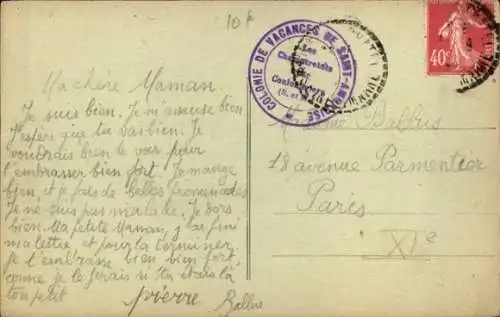 10 F
Ma chère Maman.
Je suis bien. Je m'amuse bien
J'espère que tu vas bien. Je
voudrais bien te voir pour
t'embrasser bien fort. Je mange
bien, et je fais de belles promenades
Je ne suis pas malade. Je dors
bien. Ma petite Maman, j'ai fini
ma lettre, et pour la terminer
je t'embrasse bien bien fort,
comme je le ferais si tu étais là
ton petit
pierre
Ballus
COLONIE DE VACANCES DE SAINT-AMBROISE
Les
(S.-et-M.)
40c
Madame Ballus
18 avenue Parmentier
Paris
XIe